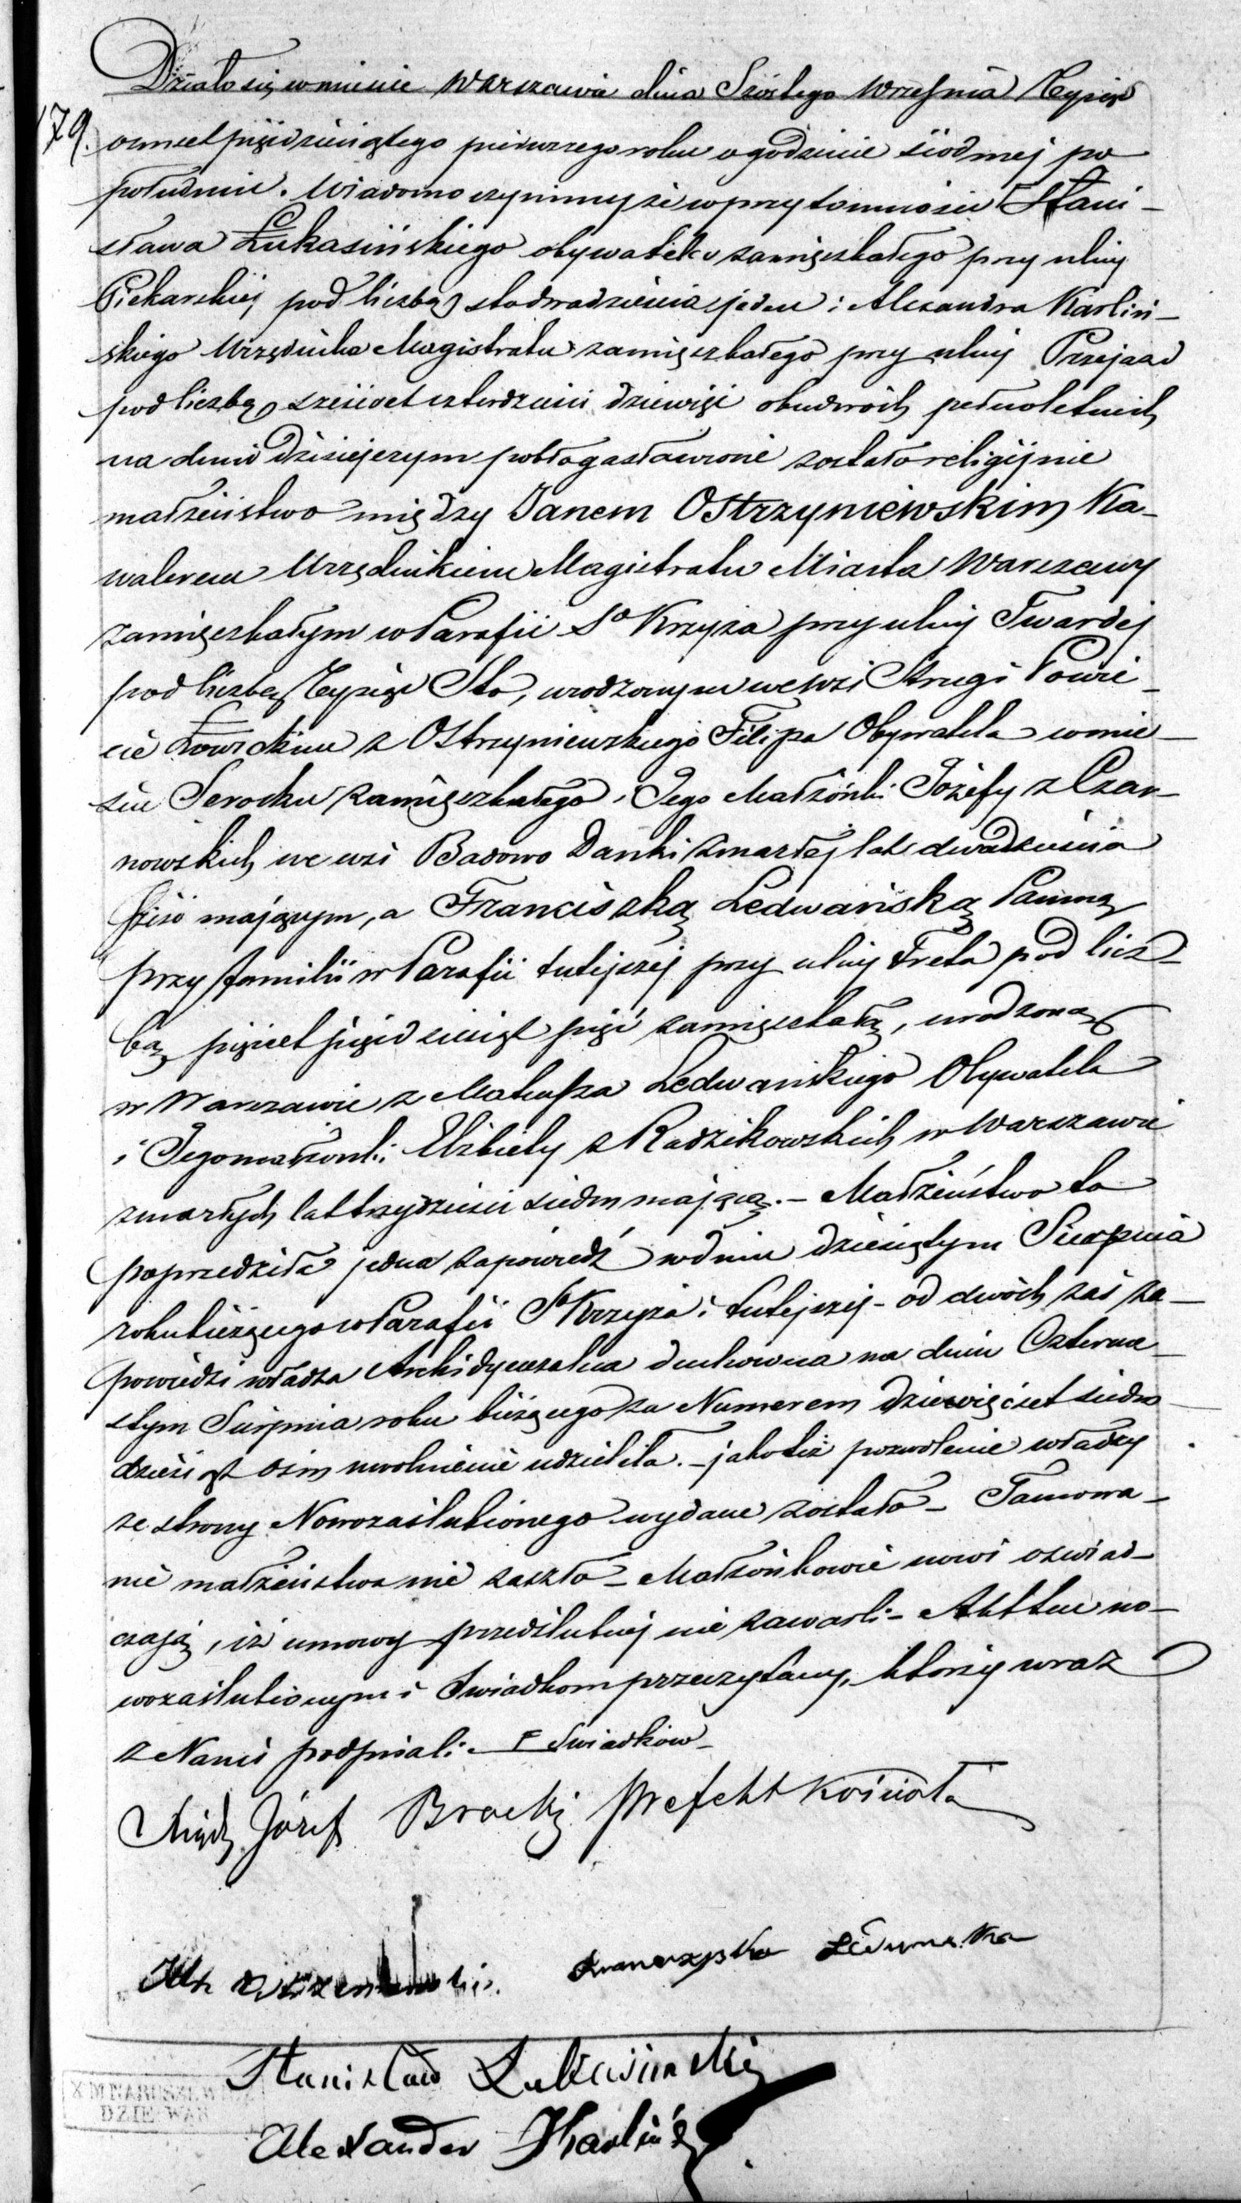 179.
Działo się w mieście Warszawie dnia Szóstego Września Tysiąc
ośmset pięćdziesiątego pierwszego roku o godzinie siódmej po
południu. Wiadomo czynimy że w przytomności Stani-
sława Łukasińskiego obywatela zamięszkałego przy ulicy
Piekarskiej pod liczbą sto dwadzieścia jeden i Alexandra Karliń-
skiego Urzędnika Magistratu zamięszkałego przy ulicy Przejazd
pod liczbą sześćset czterdzieści dziewięć obudwóch pełnoletnich
na dniu dzisiejszym pobłogasławione zostało religijnie
małżeństwo między Janem Ostrzyniewskim Ka-
walerem Urzędnikiem Magistratu Miasta Warszawy
zamięszkałym w Parafii Sgo Krzyża przy ulicy Twardej
pod liczbą Tysiąc Sto, urodzonym we wsi Strugi Powie-
cie Łowickim z Ostrzyniewskiego Filipa Obywatela w mie-
ście Serocku zamięszkałego i Jego Małżonki Józefy z Czar-
nowskich we wsi Badowo Danki zmarłej lat dwadzieścia
pięć mającym, a Franciszką Ledwańską Panną
przy familii w Parafii tutejszej przy ulicy Freta pod licz-
bą pięćset pięćdziesiąt pięć zamięszkałą, urodzoną
w Warszawie z Mateusza Ledwańskiego Obywatela
i Jego małżonki Elżbiety z Radzikowskich w Warszawie
zmarłych lat trzydzieści siedm mającą. – Małżeństwo to
poprzedziła jedna zapowiedź w dniu dziesiątym Sierpnia
roku bieżącego w Parafii Sgo Krzyża i tutejszej – od dwóch zaś za-
powiedzi władza Archidyecezalna duchowna na dniu Czterna-
stym Sierpnia roku bieżącego za Numerem dziewięćset siedm-
dziesiąt ośm uwolnienie udzieliła. – jakoteż pozwolenie władzy
ze strony Nowozaślubionego wydane zostało – Tamowa-
nie małżeństwa nie zaszło – Małżonkowie nowi oświad-
czają, iż umowy przedślubnej nie zawarli – Akt ten no-
wozaślubionym i Świadkom przeczytany, którzy wraz
z Nami podpisali. – Świadków –
Xiądz Józef Brocki Prefekt Kościoła
Jan
Franciszka Ledwańska
Stanisław Łukasiński
Alexander Karliński
X M NARUSZEW
DZIE WAR